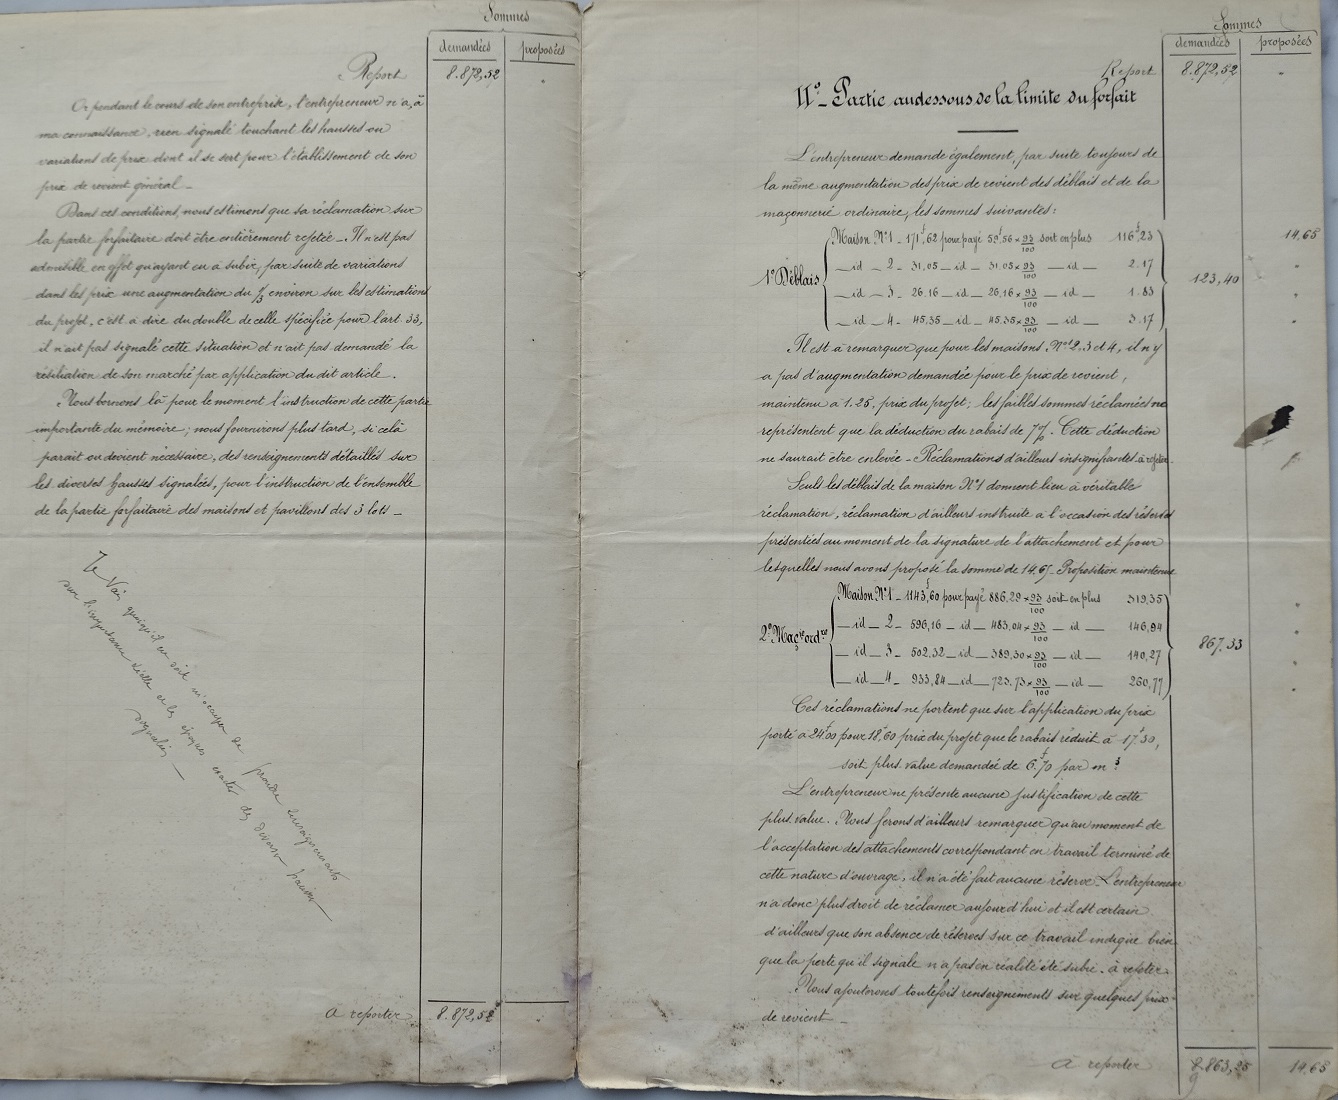 Sommes
demandées proposées
Report 8.872,52 "
Or pendant le cours de son entreprise, l'entrepreneur n'a, à
ma connaissance, rien signalé touchant les hausses ou
variations de prix dont il se sert pour l'établissement de son
prix de revient général _
Dans ces conditions, nous estimons que sa réclamation sur
la partie forfaitaire doit être entièrement rejetée _ Il n'est pas
admissible en effet qu'ayant eu à subir, par suite de variations
dans les prix une augmentation du 1/3 environ sur les estimations
du projet, c'est à dire du double de celle spécifiée pour l'art. 33,
il n'ait pas signalé cette situation et n'ait pas demandé la
résiliation de son marché par application du dit article.
Nous bornons là pour le moment l'instruction de cette partie
importante du mémoire; nous fournirons plus tard, si cela
parait ou devient nécessaire, des renseignements détaillés sur
les diverses hausses signalées, pour l'instruction de l'ensemble
de la partie forfaitaire des maisons et pavillons des 3 lots _
Je vais quoiqu'il en soit m'occuper de prendre renseignements
sur l'importance réelle et les époques exactes des diverses hausses
signalées _
A reporter 8.872,52 "
Sommes
demandées proposées
Report 8.872,52 "
II° _ Partie au dessous de la limite du forfait
L'entrepreneur demande également, par suite toujours de
la même augmentation des prix de revient des déblais et de la
maçonnerie ordinaire, les sommes suivantes:
1° Déblais
Maison N°1 _ 171f,62 pour payé 59f,56 × 93/100 soit en plus 116f,23 14,65
_ id _ 2 _ 31,05 _ id _ 31,05 × 93/100 _ id _ 2.17 "
_ id _ 3 _ 26.16 _ id _ 26,16 × 93/100 _ id _ 1.83 "
_ id _ 4 _ 45,35 _ id _ 45.35 × 93/100 _ id _ 3.17 "
123,40
Il est à remarquer que pour les maisons N°s 2, 3 et 4, il n'y
a pas d'augmentation demandée pour le prix de revient,
maintenu à 1.25, prix du projet; les faibles sommes réclamées ne
représentent que la déduction du rabais de 7%. Cette déduction
ne saurait être enlevée _ Réclamations d'ailleurs insignifiantes à rejeter.
Seuls les déblais de la maison N°1 donnent lieu à véritable
réclamation, réclamation d'ailleurs instruite à l'occasion des réserves
présentées au moment de la signature de l'attachement et pour
lesquelles nous avons proposé la somme de 14,65 _ Proposition maintenue
2° Maçie ordre
Maison N°1 _ 1143f,60 pour payé 886.29 × 93/100 soit en plus 319,35 "
_ id _ 2 _ 596,16 _ id _ 483,04 × 93/100 _ id _ 146,94 "
_ id _ 3 _ 502.32 _ id _ 389,30 × 93/100 _ id _ 140,27 "
_ id _ 4 _ 933,84 _ id _ 723,73 × 93/100 _ id _ 260,77 "
867,33
Ces réclamations ne portent que sur l'application du prix
porté à 24f00 pour 18,60 prix du projet que le rabais réduit à 17f30,
soit plus value demandée de 6f,70 par m3.
L'entrepreneur ne présente aucune justification de cette
plus value. Nous ferons d'ailleurs remarquer qu'au moment de
l'acceptation des attachements correspondant en travail terminé de
cette nature d'ouvrage, il n'a été fait aucune réserve. L'entrepreneur
n'a donc plus droit de réclamer aujourd'hui et il est certain
d'ailleurs que son absence de réserves sur ce travail indique bien
que la perte qu'il signale n'a pas en réalité été subie. à rejeter
Nous ajouterons toutefois renseignements sur quelques prix
de revient _
A reporter 9.863,25 14,65